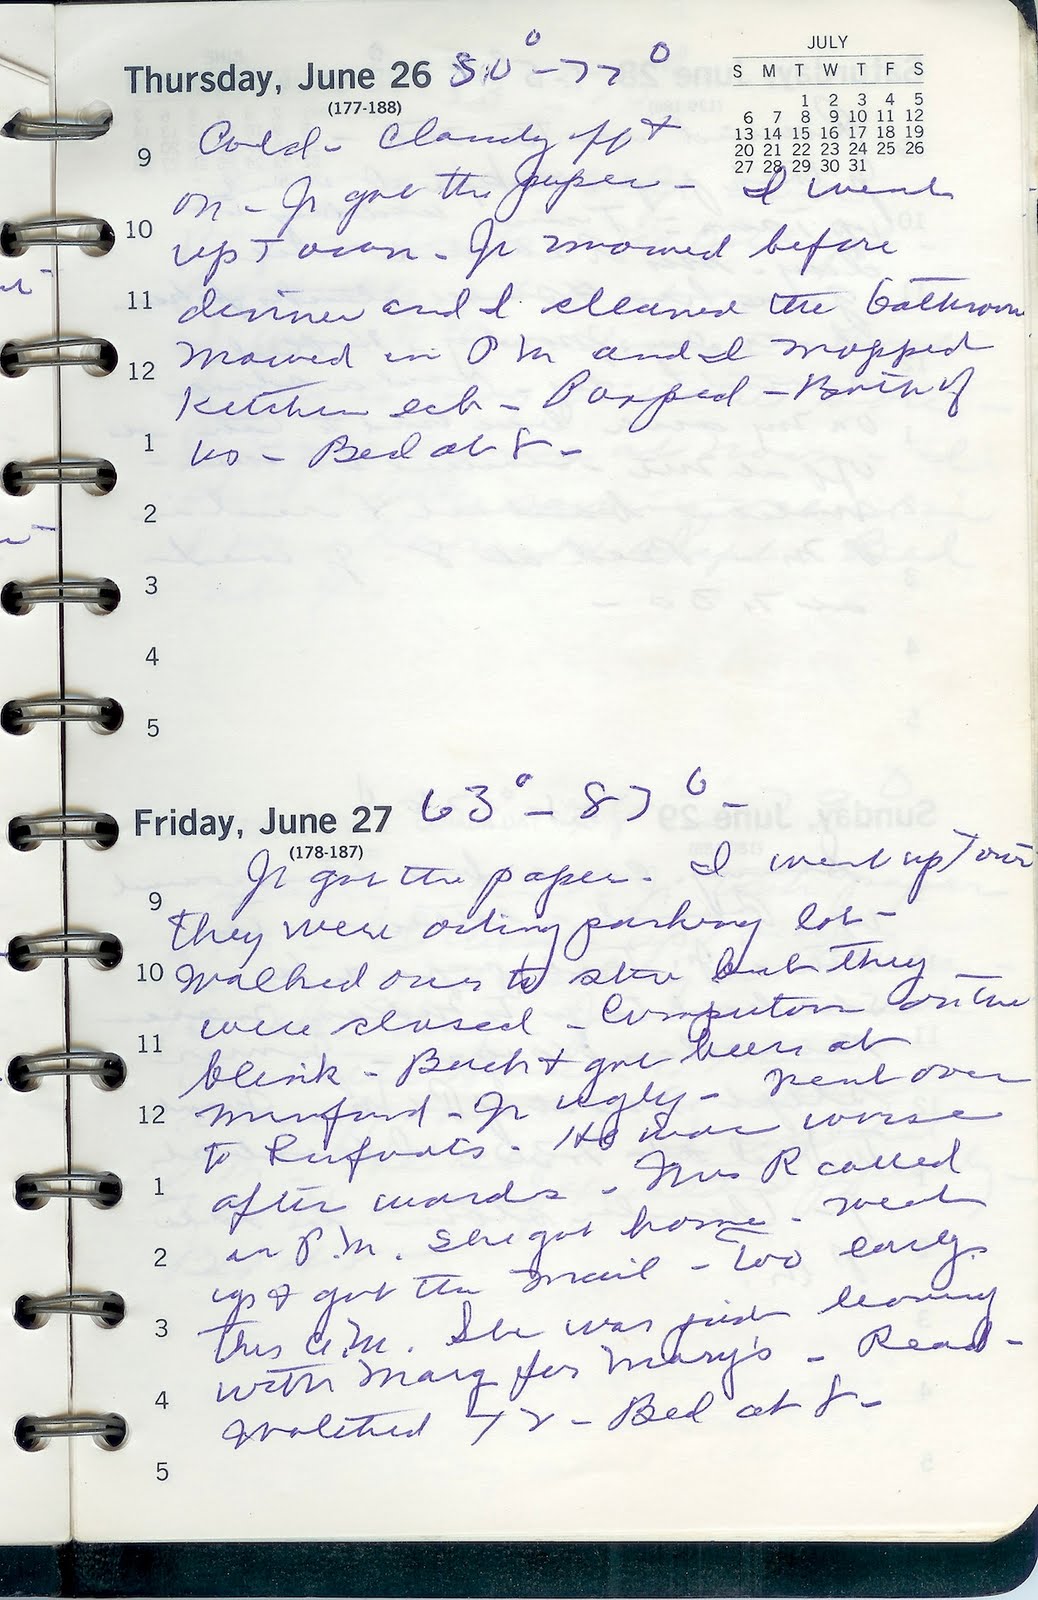 Thursday, June 26 50° - 77°
(177-188)
JULY
S M T W T F S
1 2 3 4 5
6 7 8 9 10 11 12
13 14 15 16 17 18 19
20 21 22 23 24 25 26
27 28 29 30 31
9 Cold - Cloudy off +
on - Jr got the paper - I went
10 up Town - Jr mowed before
11 dinner and I cleaned the bathroom
12 Mowed in P M and I mopped
Kitchen ect - Pooped - Both of
1 us - Bed at 8 -
2
3
4
5
Friday, June 27 63° - 87° -
(178-187)
Jr got the paper - I went up Town
9 They were oiling parking lot -
10 Walked over to store but they
were closed - Computors on the
11 blink - Back + got beer at
12 - Jr ugly - Went over
to - He was worse
1 after wards - Mrs R called
in P.M. She got home - Went
2 up + got the mail - Too early
3 this A.M. She was just leaving
with Marg for Mary's - Read -
4 Watched TV - Bed at 8 -
5